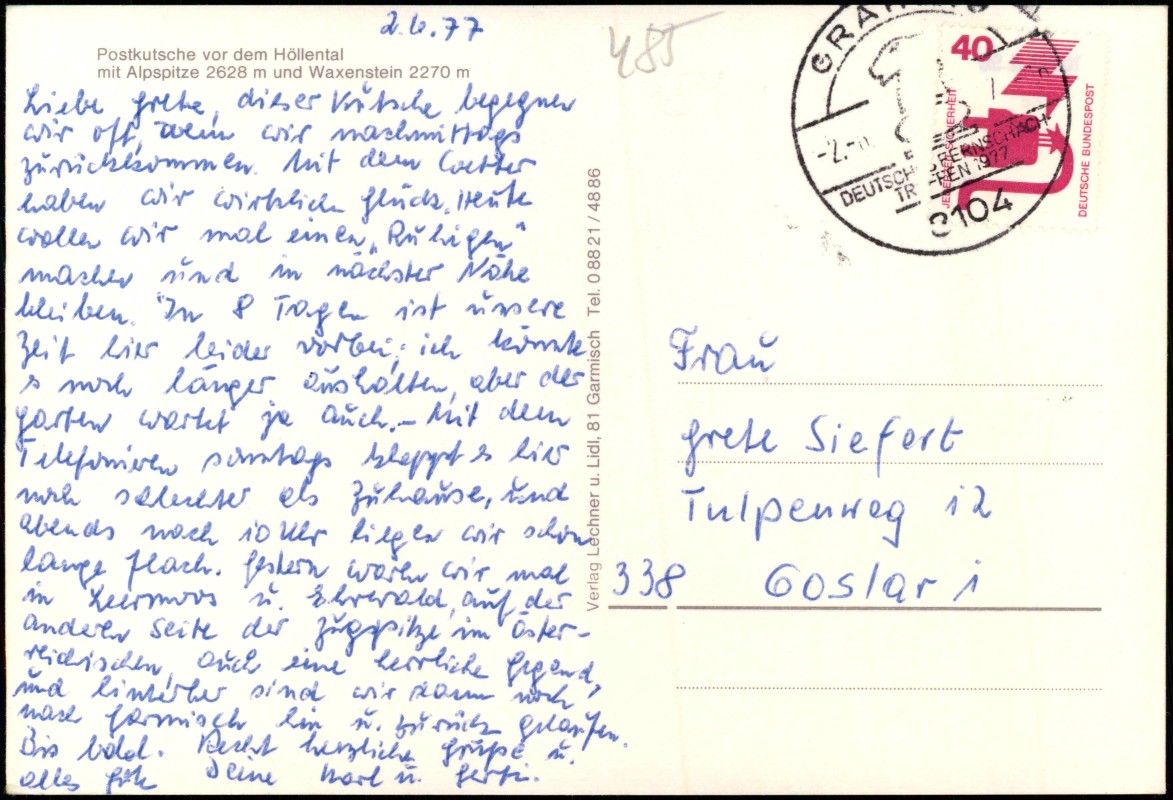 2.6.77
Postkutsche vor dem Höllental
mit Alpspitze 2628 m und Waxenstein 2270 m
Liebe Grete, dieser Kutsche begegnen
wir oft, wenn wir nachmittags
zurückkommen. Mit dem Wetter
haben wir wirklich Glück. Heute
wollen wir mal einen „Ruhigen"
machen und in nächster Nähe
bleiben. In 8 Tagen ist unsere
Zeit hier leider vorbei; ich könnte
es noch länger aushalten, aber der
Garten wartet ja auch. – Mit dem
Telefonieren sonntags kleppt es hier
noch schlechter als Zuhause, und
abends nach 10 Uhr liegen wir schon
lange flach. Gestern waren wir mal
in Leermoos u. Ehrwald, auf der
anderen Seite der Zugspitze im Öster-
reichischen, auch eine herrliche Gegend,
und hinterher sind wir dann noch
nach Garmisch hin u. zurück gelaufen.
Bis bald. Recht herzliche Grüße u.
alles Gute Deine Karl u. Gerti.
Verlag Lechner u. Lidl, 81 Garmisch Tel. 0 88 21 / 48 86
485
GRA
-2.-6.
DEUTSCHES FERNSCHACH-
TREFFEN 1977
8104
40
JEDERZEIT SICHERHEIT
DEUTSCHE BUNDESPOST
Frau
Grete Siefert
Tulpenweg 12
338 Goslar 1